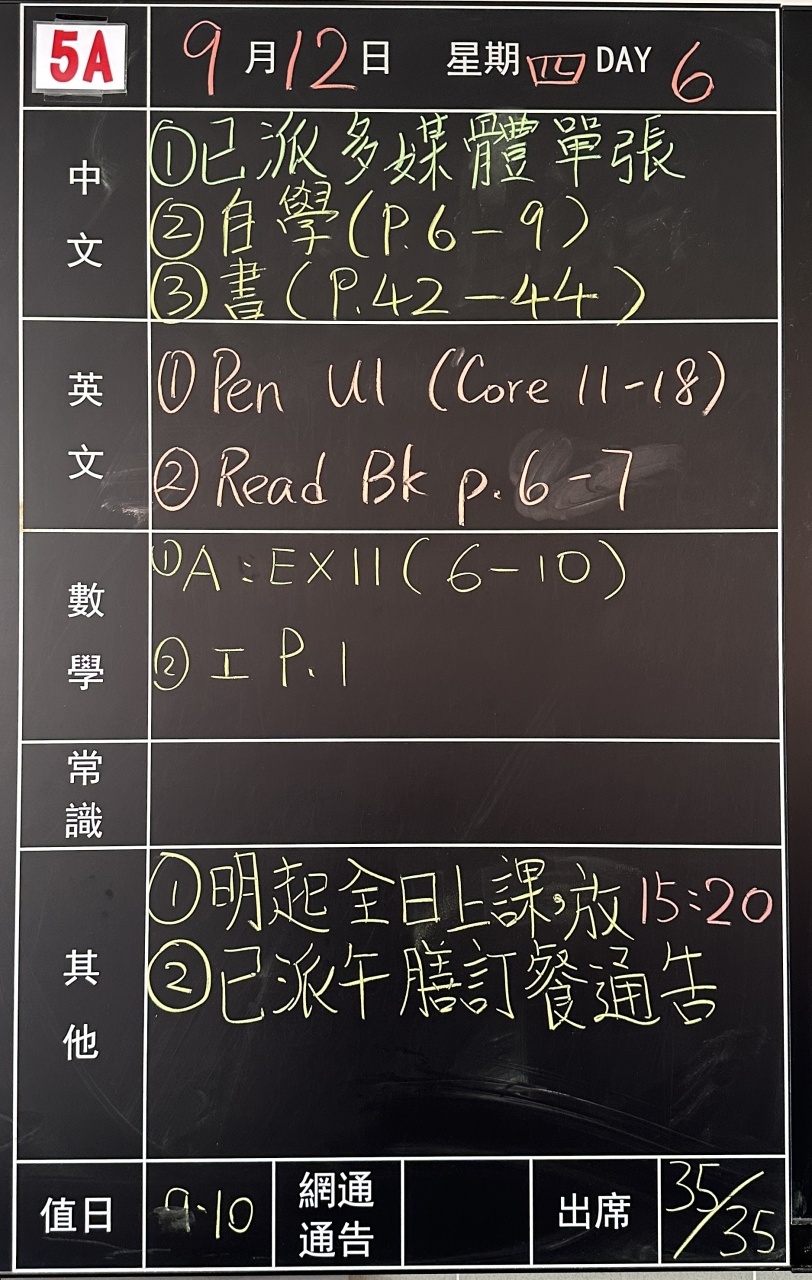 5A 9月12日 星期四 DAY 6
中文
①已派多媒體單張
②自學(P.6-9)
③書(P.42-44)
英文
①Pen U1 (Core 11-18)
②Read Bk p.6-7
數學
①A:EX11(6-10)
②工 P.1
常識
其他
①明起全日上課,放15:20
②已派午膳訂餐通告
值日 9.10 網通通告 出席 35/35